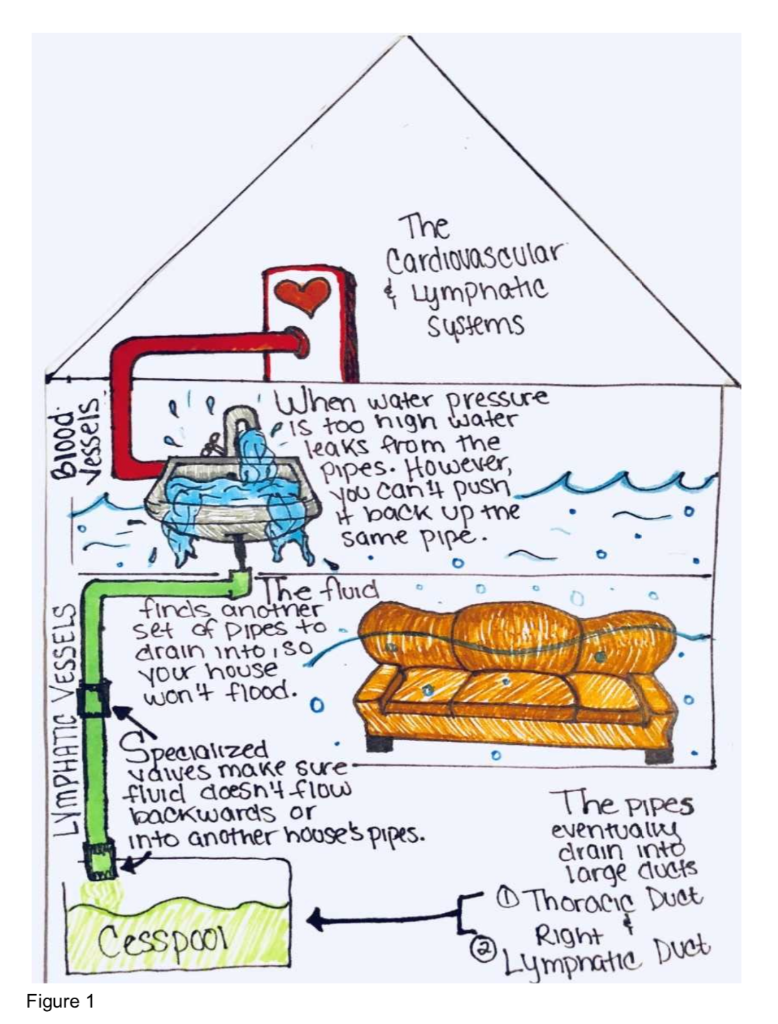 The
Cardiovascular
& Lymphatic
Systems
Blood
Vessels
When water pressure
is too high water
leaks from the
pipes. However,
you can't push
it back up the
same pipe.
LYMPHATIC VESSELS
The fluid
finds another
set of pipes to
drain into, so
your house
won't flood.
Specialized
valves make sure
fluid doesn't flow
backwards or
into another house's pipes.
The pipes
eventually
drain into
large ducts
① Thoracic Duct
&
② Right
Lymphatic Duct
Cesspool
Figure 1